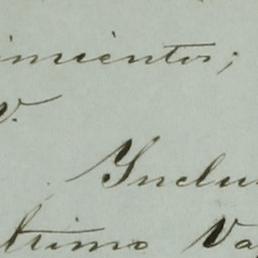 imientos;
V.
Inclu
ltimo Va